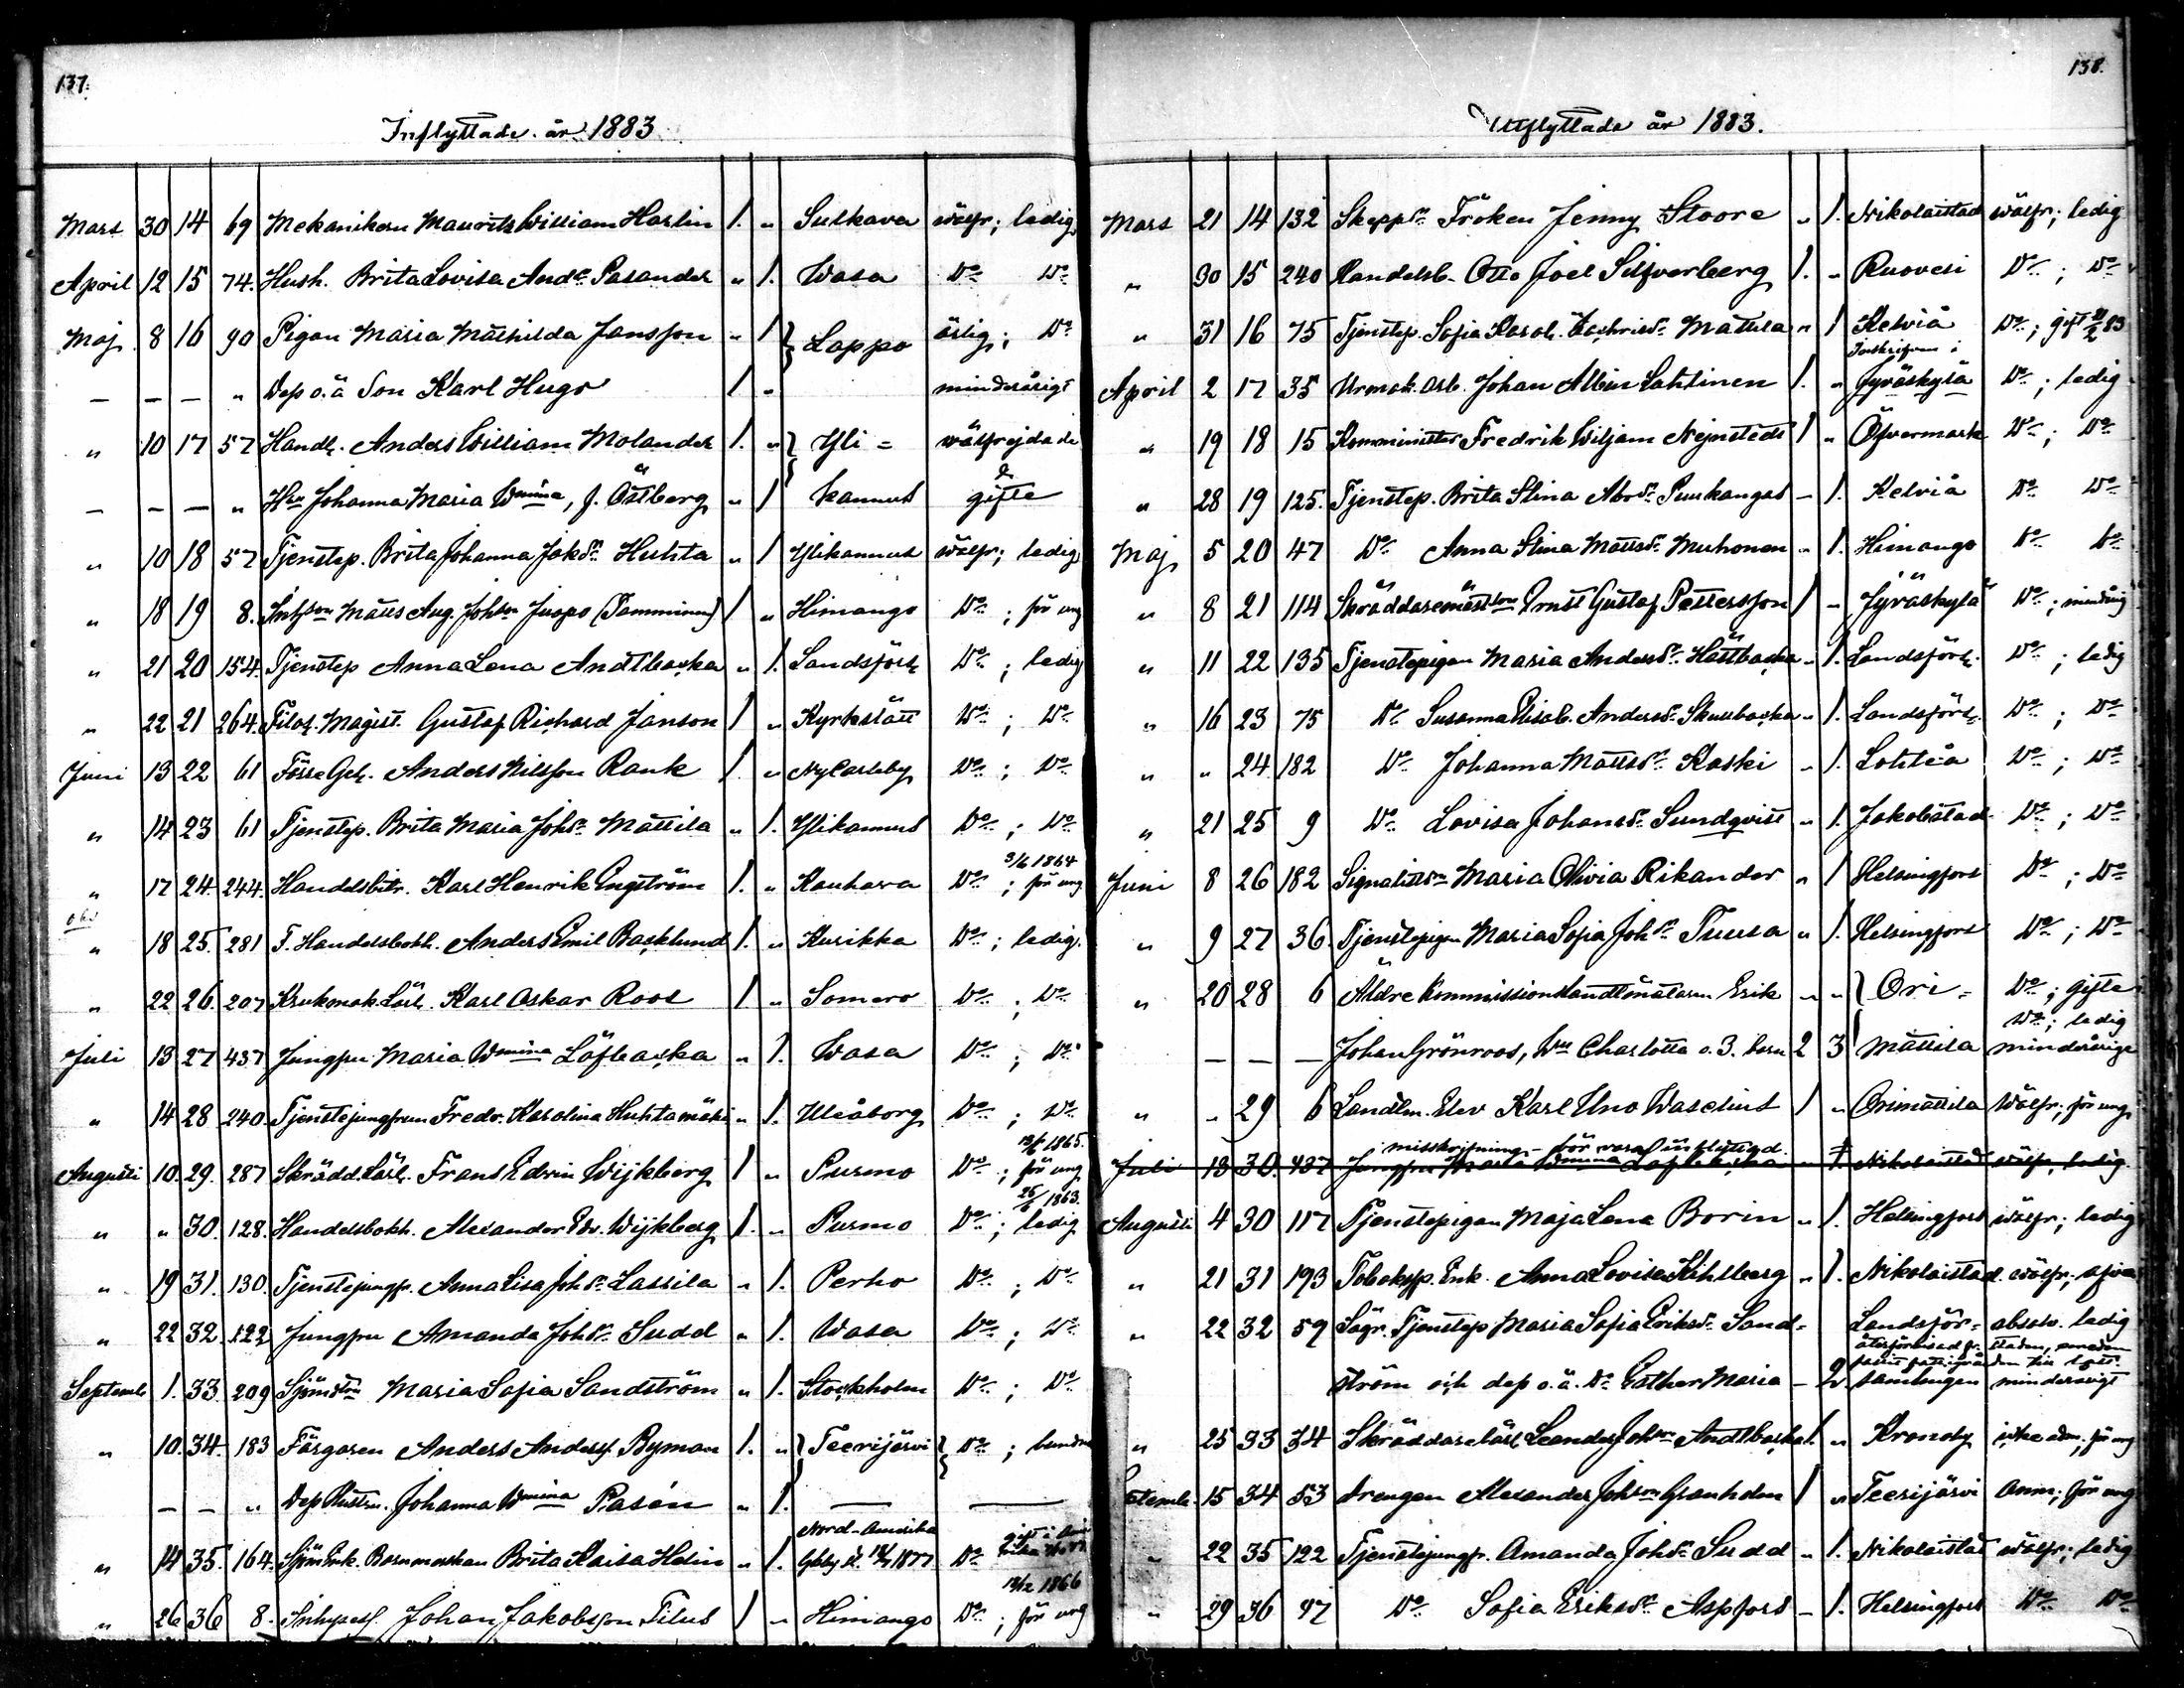 137.
Inflyttade år 1883
Mars 30 14 69 Mekanikern Maurits William Harlin 1. " Sulkava wälfr; ledig
April 12 15 74. Hush. Brita Lovisa And:r Pasander " 1. Wasa D:o D:o
Maj 8 16 90 Pigan Maria Mathilda Jansson " 1 } Lappo ärlig; D:o
— — — " Dess o.ä Son Karl Hugo 1 " minderårigt
" 10 17 57 Handl. Anders William Molander 1. " } Yli = wälfrejdade
— — — " H:un Johanna Maria W:mina, f. Östberg " 1 kannus & gifte
" 10 18 57 Tjenstep. Brita Johanna Jakd:r Huhta " 1 Ylikannus wälfr; ledig
" 18 19 8. Inhys:son Matts Aug. Johs:on Juopo (Tamminen) 1 " Himango D:o; för ung
" 21 20 154. Tjenstep Anna Lena Andtbacka " 1. Landsförs. D:o; ledig
" 22 21 264. Filos. Magist. Gustaf Richard Janson 1 " Kyrkslätt D:o; D:o
Juni 13 22 61 Anders Nilsson Rank 1 " Ny Carleby D:o; D:o
" 14 23 61 Tjenstep. Brita Maria Johd:r Mattila " 1. Ylikannus D:o; D:o
" 17 24 244. Handelsbitr. Karl Henrik Engström 1. " Kauhava D:o; 3/6 1864 för ung
obs " 18 25. 281 F. Handelsbokh. Anders Emil Backlund 1. " Kurikka D:o; ledig.
" 22 26. 207 Krukmak. Lärl. Karl Oskar Roos 1 " Somero D:o; D:o
Juli 13 27 437 Jungfru Maria W:mina Löfbacka " 1. Wasa D:o; D:o
" 14 28 240. Tjenstejungfrun Fredr. Karolina Huhtamäki " 1. Uleåborg D:o; D:o
Augusti 10. 29. 287 Skrädd. Lärl. Frans Edvin Wijkberg 1 " Purmo D:o; 1865. för ung
" " 30. 128. Handelsbokh. Alexander Edv. Wijkberg 1. " Purmo D:o; 1863. ledig
" 19 31. 130. Tjenstejungfr. Anna Lisa Johd:r Lassila " 1. Perho D:o; D:o
" 22 32. 122 Jungfru Amanda Johd:r Sudd " 1. Wasa D:o; D:o
Septemb 1. 33. 209 Maria Sofia Sandström " 1. Stockholm D:o; D:o
" 10. 34. 183 Färgaren Anders Anders. Byman 1. " } Teerijärvi } D:o;
— — " Dess Hustru Johanna W:mina Pasén " 1. — —
" 14 35. 164. Sjöm:Enk. Barnmorskan Brita Kaisa Helin " 1. Nord-Amerika 1877. D:o
" 26 36 8. Johan Jakobsson Titus 1 " Himango D:o; 1866 för ung
138.
Utflyttade år 1883.
Mars 21 14 132 Fröken Jenny Stoore " 1. Nikolaistad wälfr; ledig
" 30 15 240 Handelsb. Otto Joel Silfverberg 1. " Ruovesi D:o; D:o
" 31 16 75 Tjenstep. Sofia Karol. Zachrisd:r Mattila " 1 Kelviå D:o; gift 83
April 2 17 35 Urmak. arb. Johan Albin Lahtinen 1. " Inskrifven i Jyväskylä D:o; ledig
" 19 18 15 Komminister Fredrik Wiljam Nejnstedt 1 " Öfvermark D:o; D:o
" 28 19 125. Tjenstep. Brita Stina Abrd:r Puukangas — 1. Kelviå D:o D:o
Maj 5 20 47 D:o Anna Stina Mattsd:r Muhonen " 1. Himango D:o D:o
" 8 21 114 Skräddaremästson Ernst Gustaf Pettersson 1 — Jyväskylä D:o; minderårig
" 11 22 135 Tjenstepigan Maria Andersd:r Hästbacka " 1. Landsförs. D:o; ledig
" 16 23 75 D:o Susanna Elisab. Andersd:r Skullbacka " 1. Landsförs. D:o; D:o
" " 24 182 D:o Johanna Mattsd:r Kaski " 1. Lohteå D:o; D:o
" 21 25 9 D:o Lovisa Johansd:r Sundqvist " 1. Jakobstad D:o; D:o
Juni 8 26 182 Maria Olivia Rikander " 1 Helsingfors D:o; D:o
" 9 27 36 Tjenstepigan Maria Sofia Johd:r Tuura " 1. Helsingfors D:o; D:o
" 20 28 6 Äldre Kommissionslandtmätaren Erik " " } Ori = D:o; gifte
— — — Johan Grönroos, H:un Charlotta o. 3. barn 2 3 mattila D:o; ledig minderåriga
" " 29 6 Landtm. Elev Karl Uno Waselius 1 " Orimattila Wälfr; för ung
misskrifning - bör vara inflyttad.
Juli 13 30. 437 Jungfru Maria W:mina Löfbacka " 1. Nikolaistad wälfr, ledig.
Augusti 4 30 117 Tjenstepigan Maja Lena Borin " 1. Helsingfors wälfr; ledig
" 21 31 193 Enk. Anna Lovisa Kihlberg " 1. Nikolaistad. wälfr;
" 22 32 59 Lägr. Tjenstep Maria Sofia Eriksd:r Sand= Landsför= absolv. ledig
ström och dess o.ä. D:o Esther Maria — 2. samlingen minderårigt
" 25 33 34 Skräddarelärl. Leander Johs:on Andtbacka 1. " Kronoby icke adm. för ung
Septemb. 15 34 53 Drengen Alexander Johs:on Granholm 1 " Teerijärvi Anm; för ung
" 22 35 122 Tjenstejungfr. Amanda Johd:r Sudd " 1. Nikolaistad wälfr; ledig
" 29 36 47 D:o Sofia Eriksd:r Aspfors — 1. Helsingfors D:o D:o